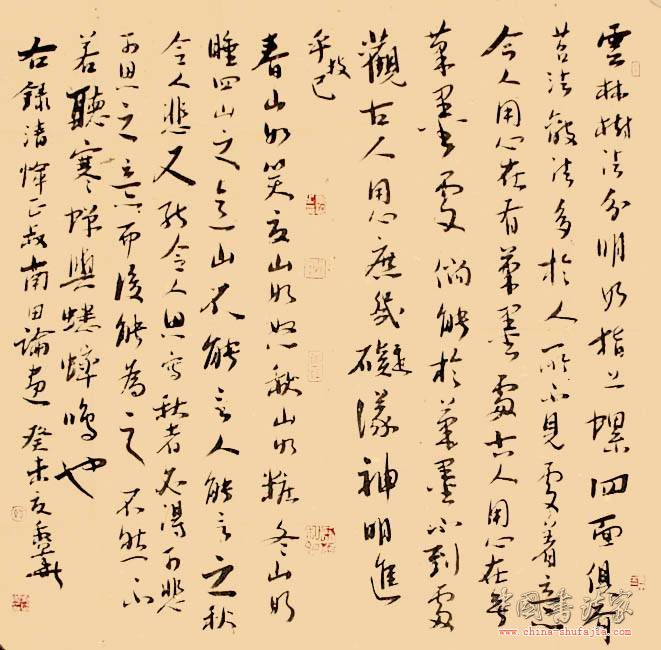 雲林樹法分明如指上螺四面俱有
苔法皴法多於人所不見處着意
今人用心在有筆墨處古人用心在無
筆墨處倘能於筆墨不到處
觀古人用心庶幾擬議神明進
乎技已
春山如笑夏山如怒秋山如粧冬山如
睡四山之意山不能言人能言之秋
令人悲又能令人思寫秋者必得可悲
可思之意而後能為之不然不
若聽寒蟬與蟋蟀鳴也
右錄清惲正叔南田論畫 癸未夏
中國書法家
www.china-shufajia.com